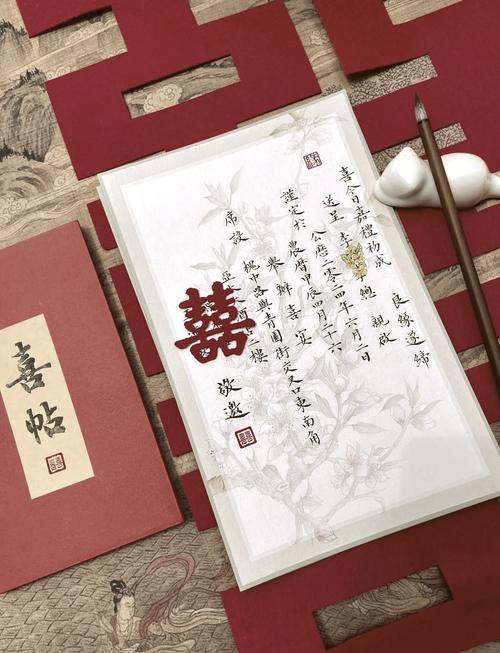 喜今日嘉禮初成 良緣遂締
送呈 李 總 親啟
公曆二零二四年六月二日
謹定於 農曆甲辰四月二十六
舉辦喜宴
席設 槐中路與青園街交叉口東南角
二樓
敬邀
囍
囍
喜帖
囍